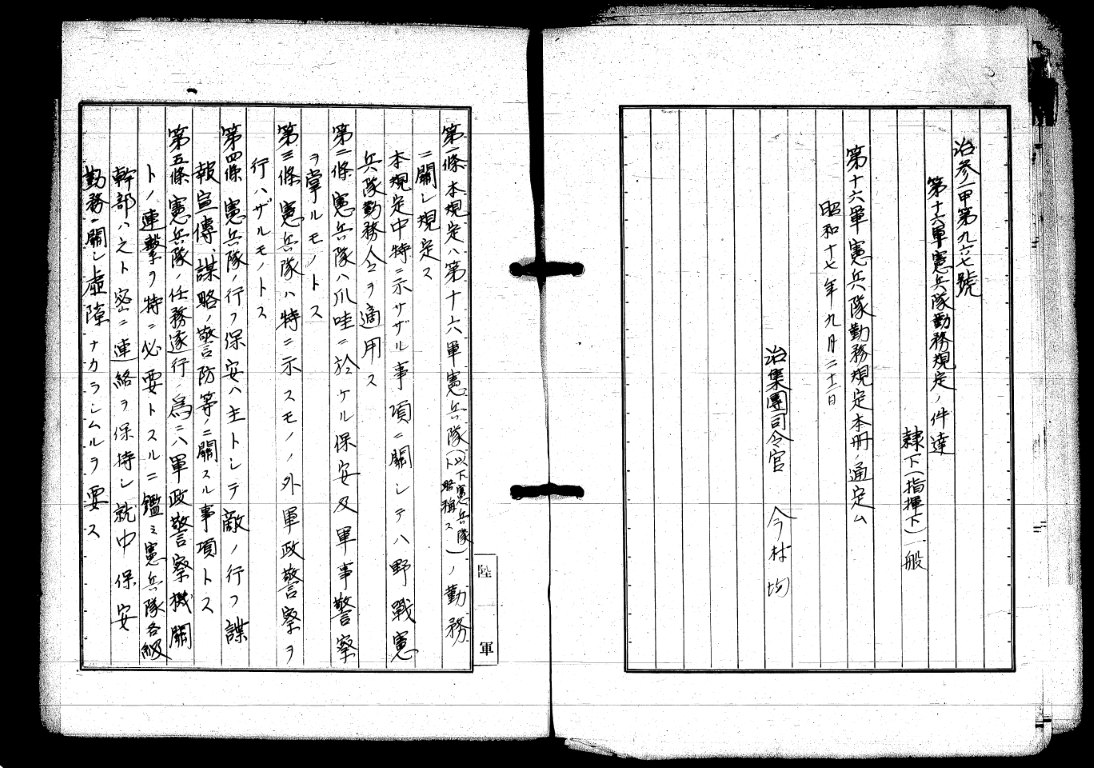 治参一甲第九六七號
第十六軍憲兵隊勤務規定ノ件達
隷下(指揮下)一般
第十六軍憲兵隊勤務規定本冊ノ通定ム
昭和十七年九月二十二日
治集團司令官 今村均
第一條本規定ハ第十六軍憲兵隊(以下憲兵隊ト略稱ス)ノ勤務
ニ關シ規定ス
本規定中特ニ示サザル事項ニ關シテハ野戰憲
兵隊勤務令ヲ適用ス
第二條憲兵隊ハ爪哇ニ於ケル保安及軍事警察
ヲ掌ルモノトス
第三條憲兵隊ハ特ニ示スモノノ外軍政警察ヲ
行ハザルモノトス
第四條憲兵隊ノ行フ保安ハ主トシテ敵ノ行フ諜
報宣傳、謀略ノ警防等ニ關スル事項トス
第五條憲兵隊任務遂行ノ爲ニハ軍政警察機關
トノ連撃ヲ特ニ必要トスルニ鑑ミ憲兵隊各級
幹部ハ之ト密ニ連絡ヲ保持シ就中保安
勤務ニ關シ虚隙ナカラシムルヲ要ス
陸軍